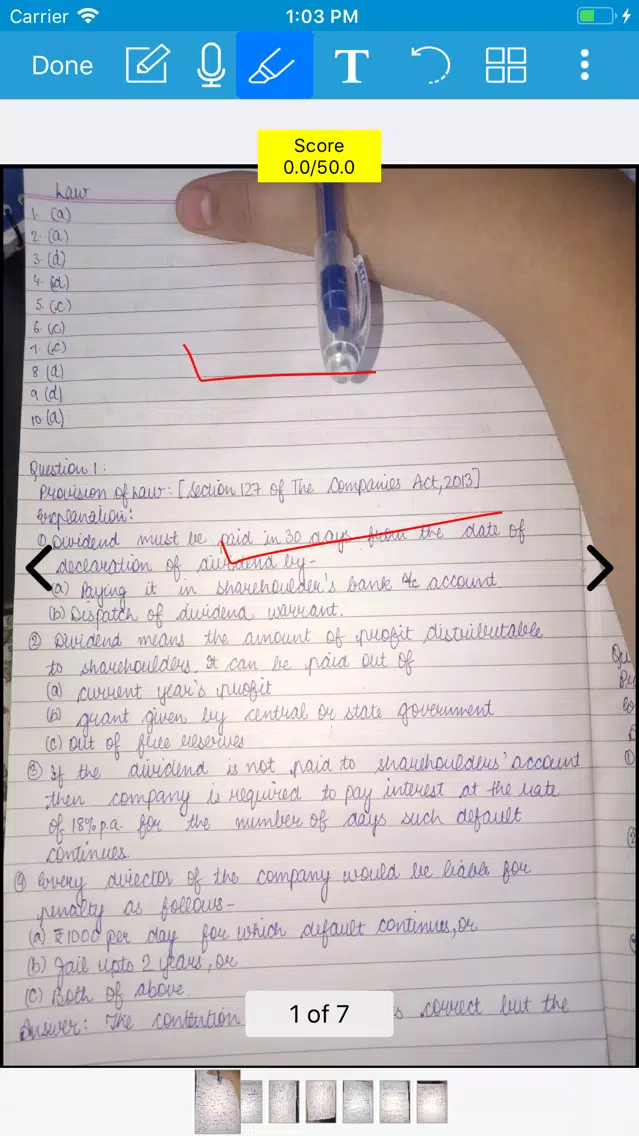 Carrier 1:03 PM
Done T
Score
0.0/50.0
Law
1. (a)
2. (a)
3. (d)
4. (d)
5. (c)
6. (c)
7. (c)
8 (d)
9 (d)
10 (d)
Question 1:
Provision of Law: [Section 127 of The Companies Act, 2013]
Explanation:
① Dividend must be paid in 30 days from the date of
declaration of dividend by-
(a) Paying it in shareholder's bank account
(b) Dispatch of dividend warrant.
② Dividend means the amount of profit distributable
to shareholders. It can be paid out of
(a) current year's profit
(b) grant given by central or state government
(c) out of free reserves
③ If the dividend is not paid to shareholders' account
then company is required to pay interest at the rate
of 18% p.a. for the number of days such default
continues.
④ Every director of the company would be liable for
penalty as follows-
(a) ₹1000 per day for which default continues, or
(b) Jail upto 2 years, or
(c) Both of above.
Answer: The contention s correct but the
1 of 7